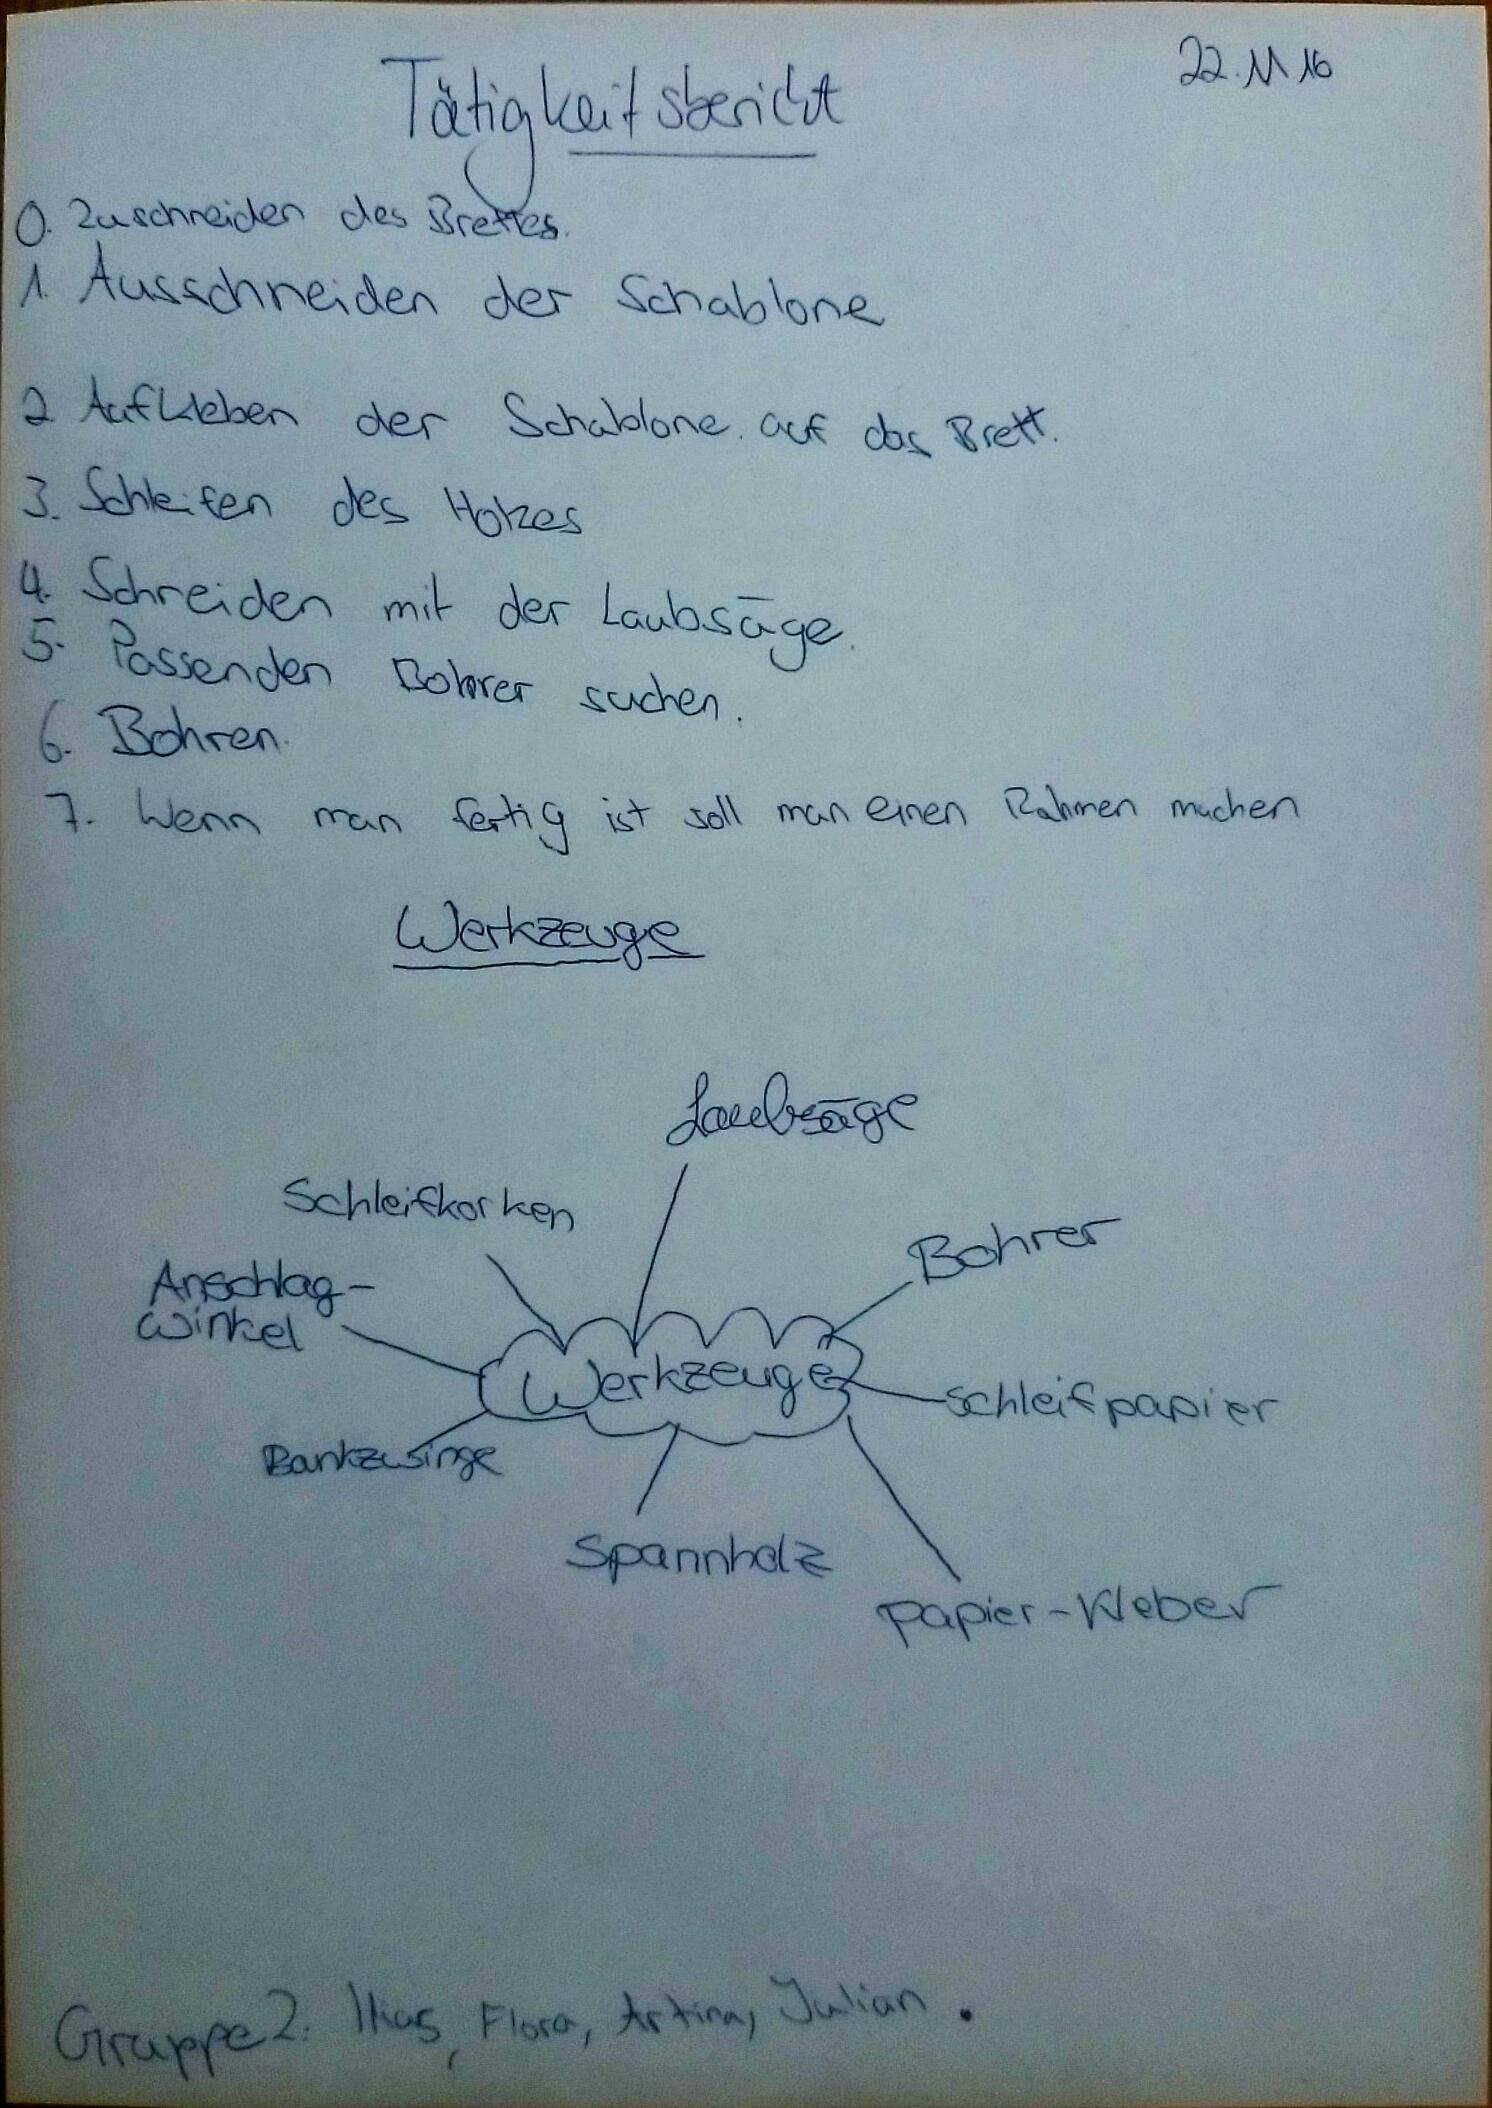 22.11 16
Tätigkeitsbericht
0. Zuschneiden des Brettes.
1. Ausschneiden der Schablone
2 Aufkleben der Schablone. auf das Brett.
3. Schleifen des Holzes
4. Schneiden mit der Laubsäge.
5. Passenden Bohrer suchen.
6. Bohren.
7. Wenn man fertig ist soll man einen Rahmen machen
Werkzeuge
Laubsäge
Schleifkorken
Bohrer
Anschlag-
winkel
Werkzeuge
Schleifpapier
Bankzwinge
Spannholz
Papier-Kleber
Gruppe 2: Ilias, Flora, Artina, Julian.